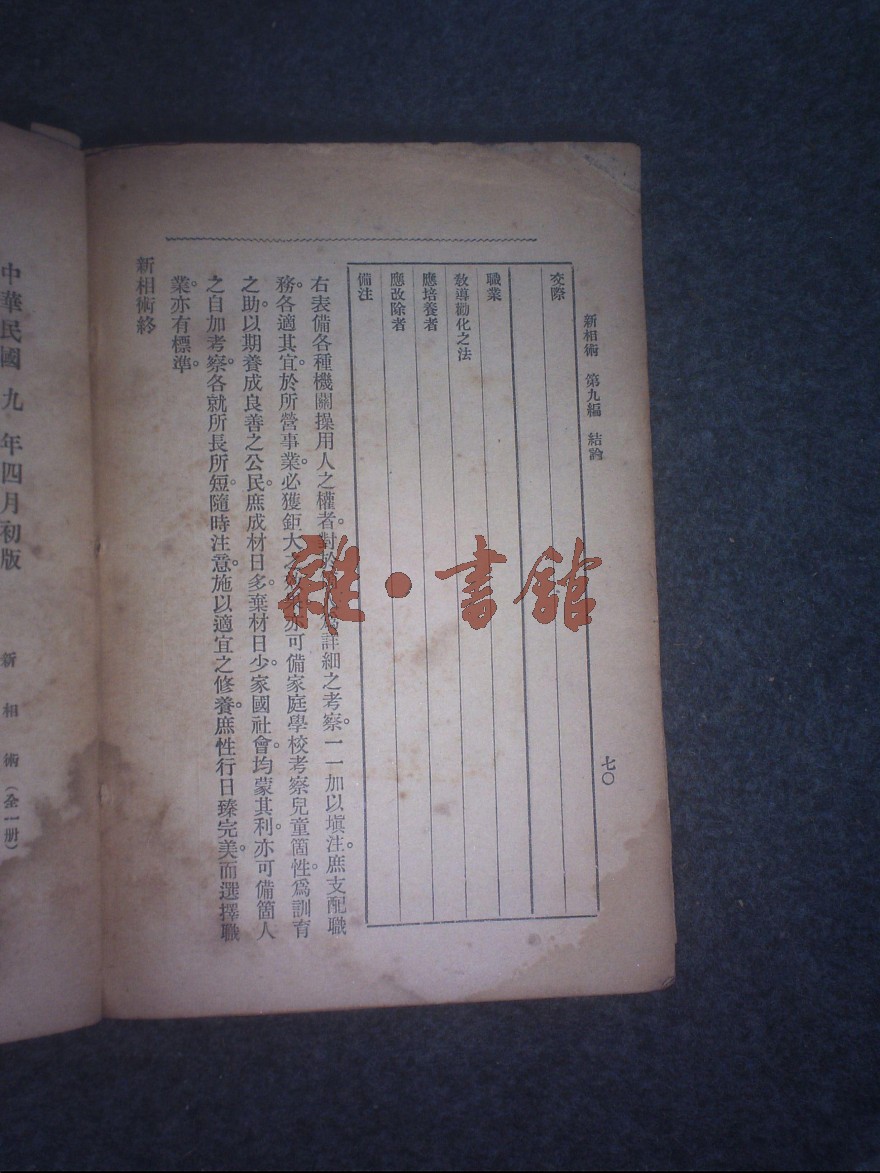 新相術　第九編　結論
七〇
交際
職業
教導勸化之法
應培養者
應改除者
備注
右表備各種機關操用人之權者。對於詳細之考察。一一加以塡注。庶支配職
務。各適其宜。於所營事業。必獲鉅大之亦可備家庭學校考察兒童箇性。爲訓育
之助。以期養成良善之公民。庶成材日多。棄材日少。家國社會。均蒙其利。亦可備箇人
之自加考察。各就所長所短。隨時注意。施以適宜之修養。庶性行日臻完美。而選擇職
業。亦有標準。
新相術終
中華民國九年四月初版
新相術（全一册）
雜·書館